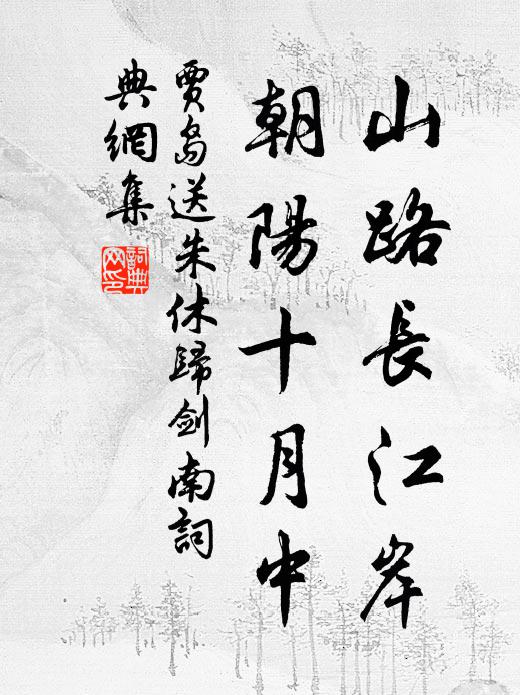 山路長江岸
朝陽十月中
賈島送朱休歸劍南詞
典網集
詞典網印